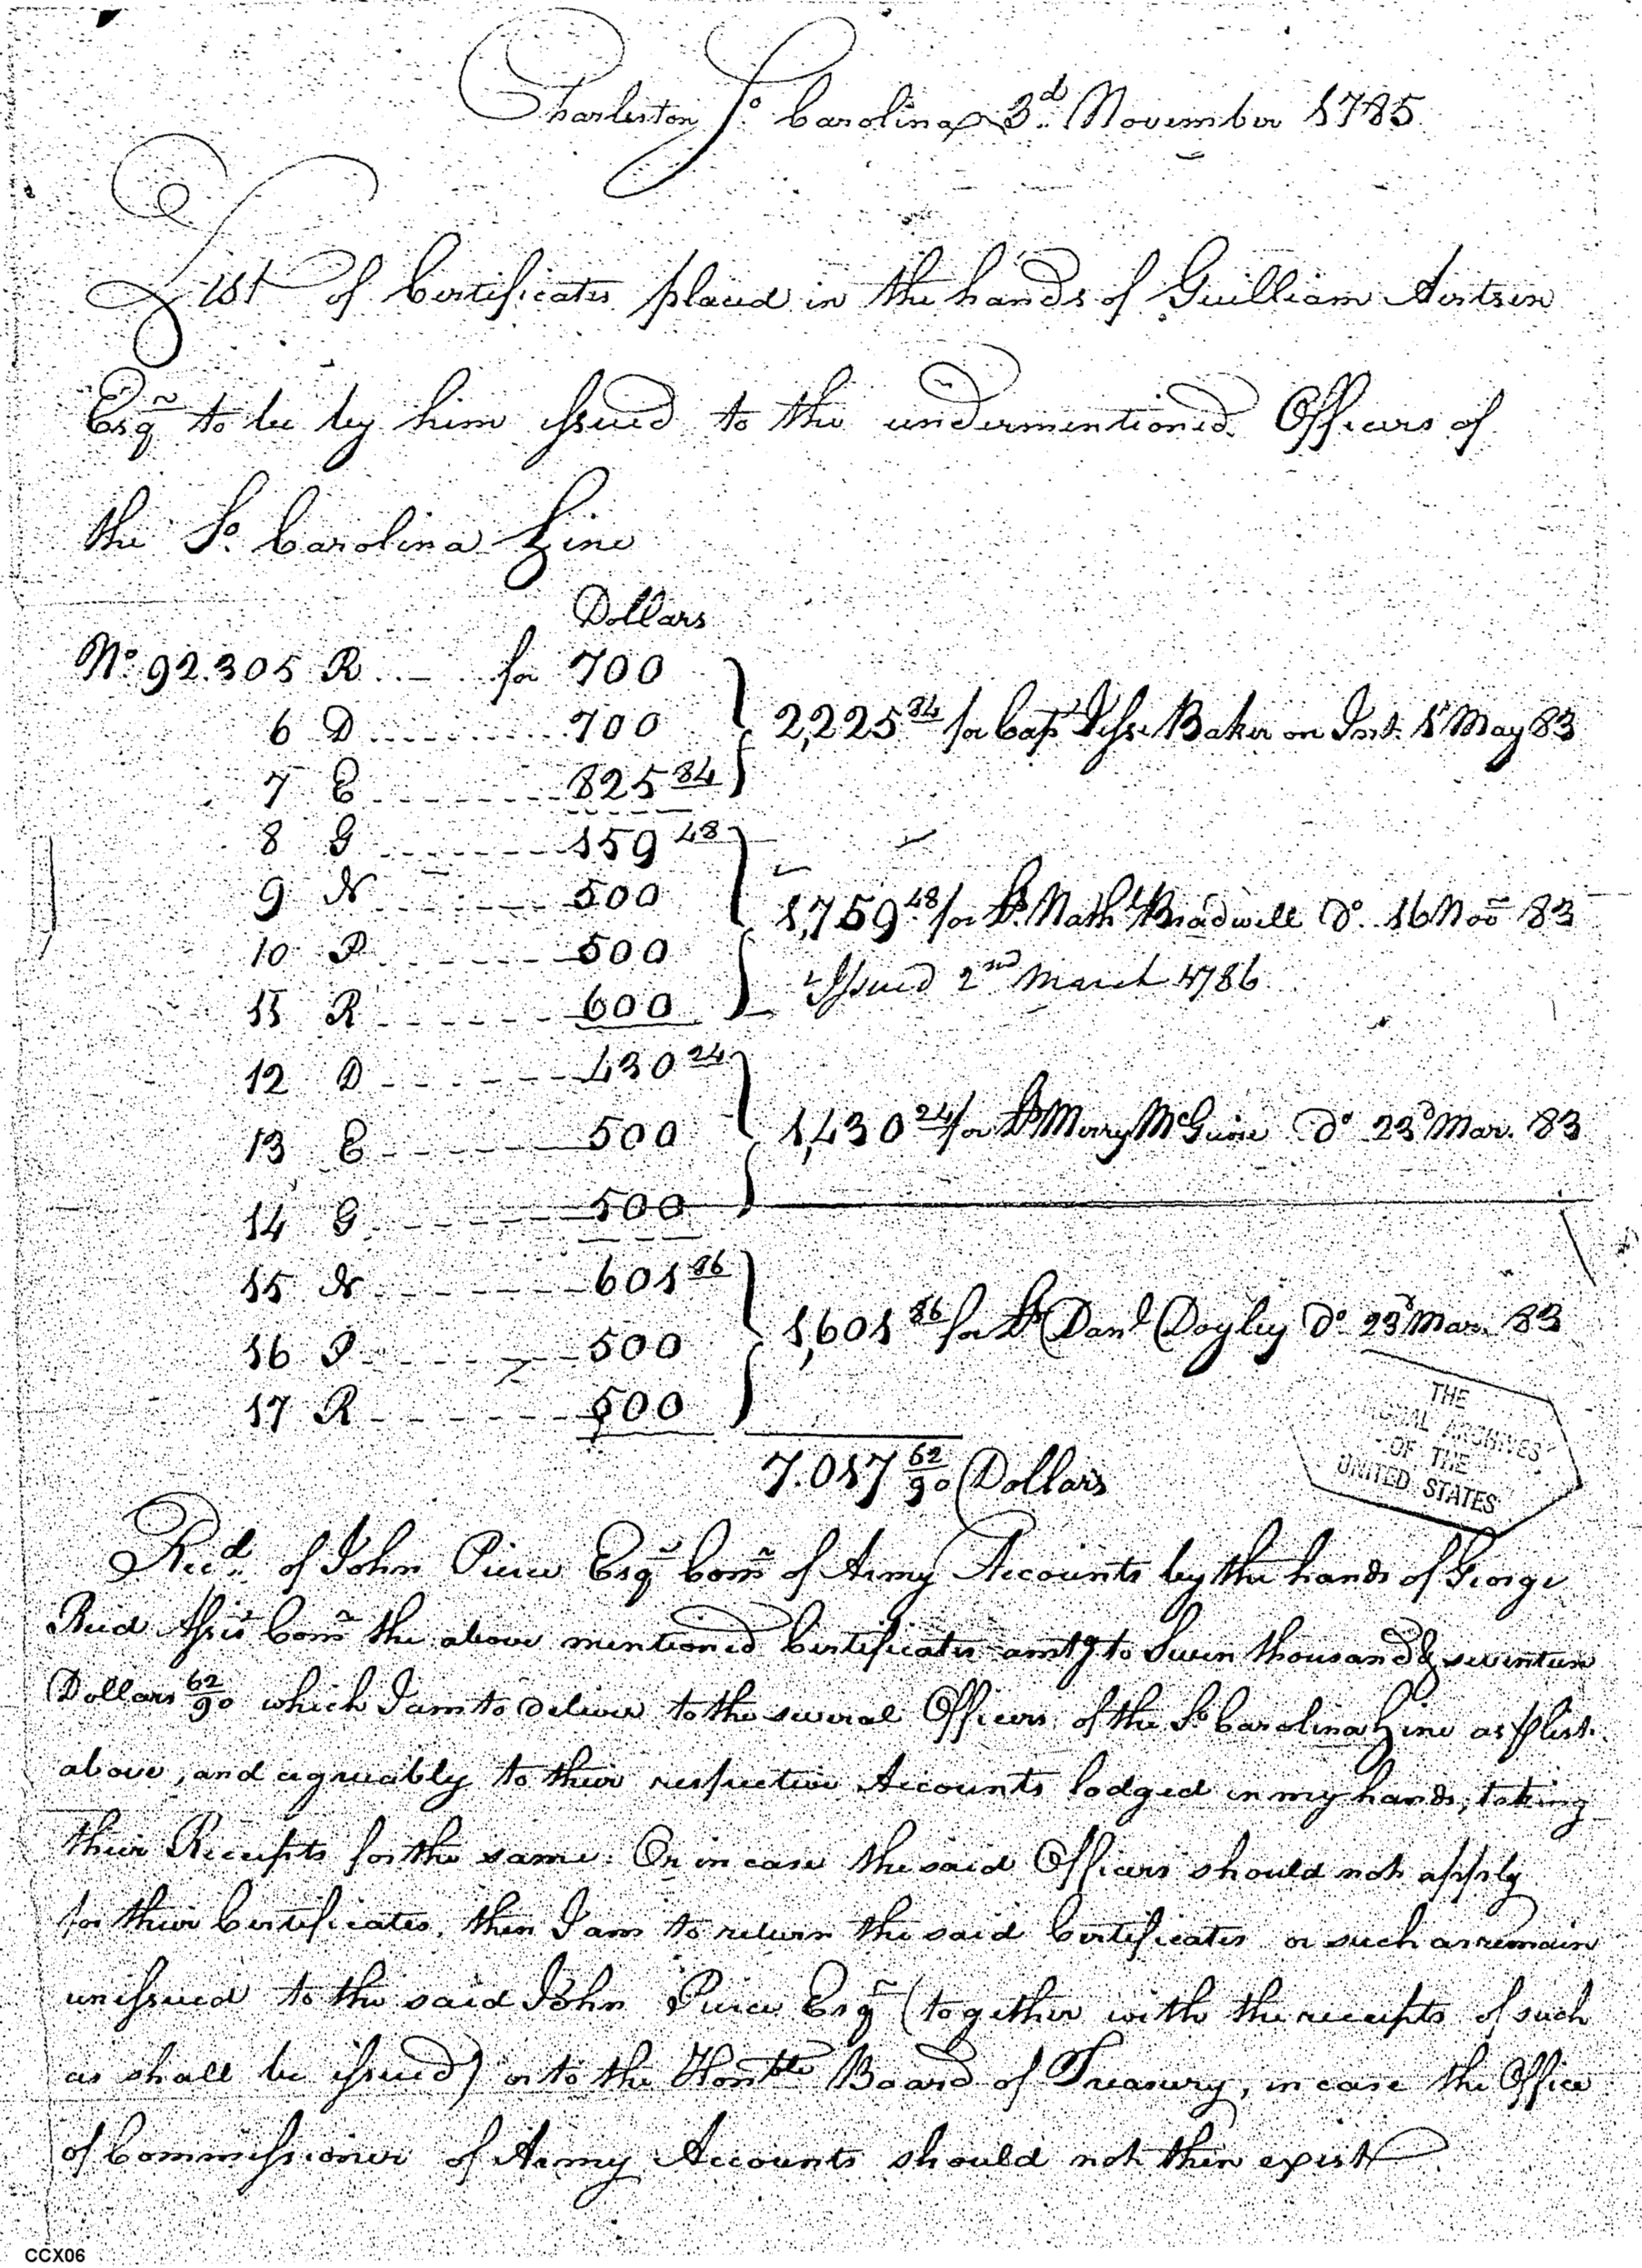 Charleston So. Carolina 3d. November 1785
List of Certificates placed in the hands of Guilliam Aertsen
Esqr to be by him issued to the undermentioned Officers of
the So. Carolina Line
Dollars
No. 92.305 R for 700
6 D 700
7 E 825 84
2,225 84 for Capt Jesse Baker on Int. 1st May 83
8 G 159 48
9 N 500
10 P 500
11 R 600
1,759 48 for Lt. Nathl Bradwell Do. 16 Nov 83
Issued 2nd March 1786
12 D 430 24
13 E 500
14 G 500
1,430 24 for Lt Merry McGuire Do 23d Mar. 83
15 N 601 86
16 P 500
17 R 500
1,601 86 for Lt Danl Doyley Do 23d Mar. 83
7.017 62/90 Dollars
THE
NATIONAL ARCHIVES
OF THE
UNITED STATES
Recd. of John Pierce Esqr Comr of Army Accounts by the hands of George
Reid Asst Comr the above mentioned Certificates amtg to Seven thousand & seventeen
Dollars 62/90 which I am to deliver to the several Officers of the So Carolina Line as p list
above, and agreeably to their respective Accounts lodged in my hands, taking
their Receipts for the same. Or in case the said Officers should not apply
for their Certificates, then I am to return the said Certificates or such as remain
unissued to the said John Pierce Esqr (together with the receipts of such
as shall be issued) or to the Honble Board of Treasury, in case the Office
of Commissioner of Army Accounts should not then exist
CCX06